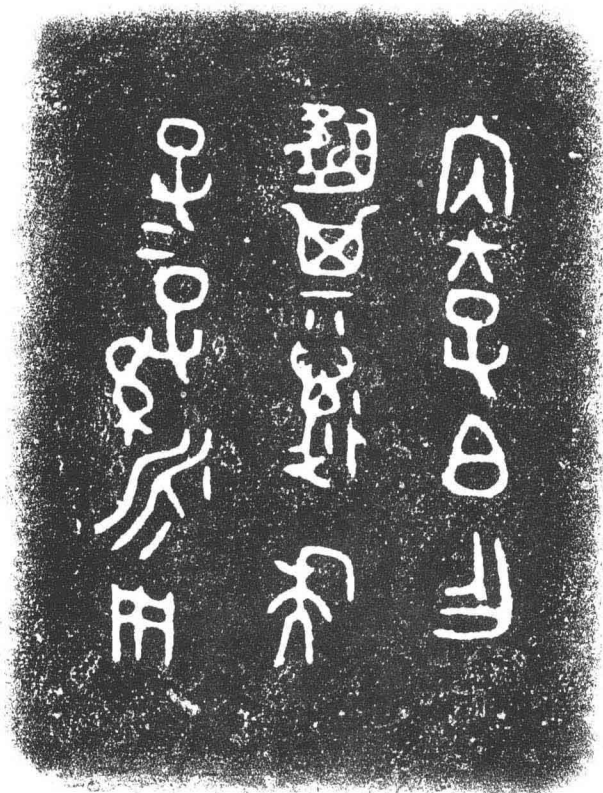 内大子白乍
簠其萬年
子=孫永用